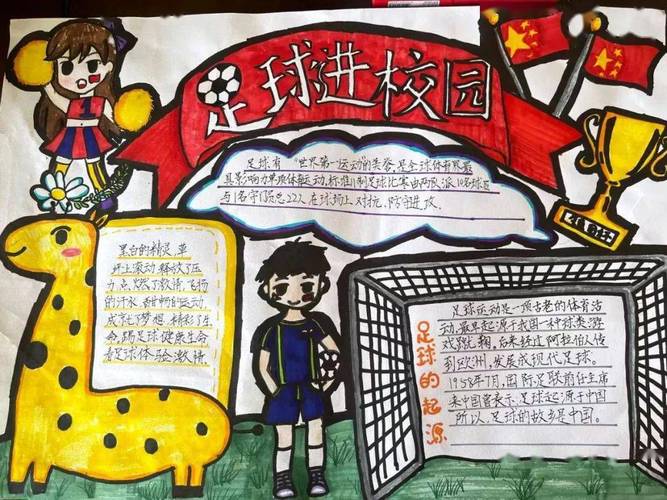 足球进校园
足球有"世界第一运动"的美誉,是全球体育界最
具影响力单项体育运动,标准11制足球比赛由两队派10名球员
与1名守门员总22人,在球场上对抗,防守进攻
黑白的精灵,草
坪上滚动,释放了压
力,点燃了激情,飞扬
的汗水,
成就了梦想,精彩了生
命,踢足球健康生命
踢足球体验激情
足球的起源
足球运动是一项古老的体育活
动,最早起源于我国一种球类游
戏蹴鞠,后来经过阿拉伯人传
到欧洲,发展成现代足球。
1958年7月,国际足联前任主席
来中国曾表示,足球起源于中国
所以,足球的故乡是中国。